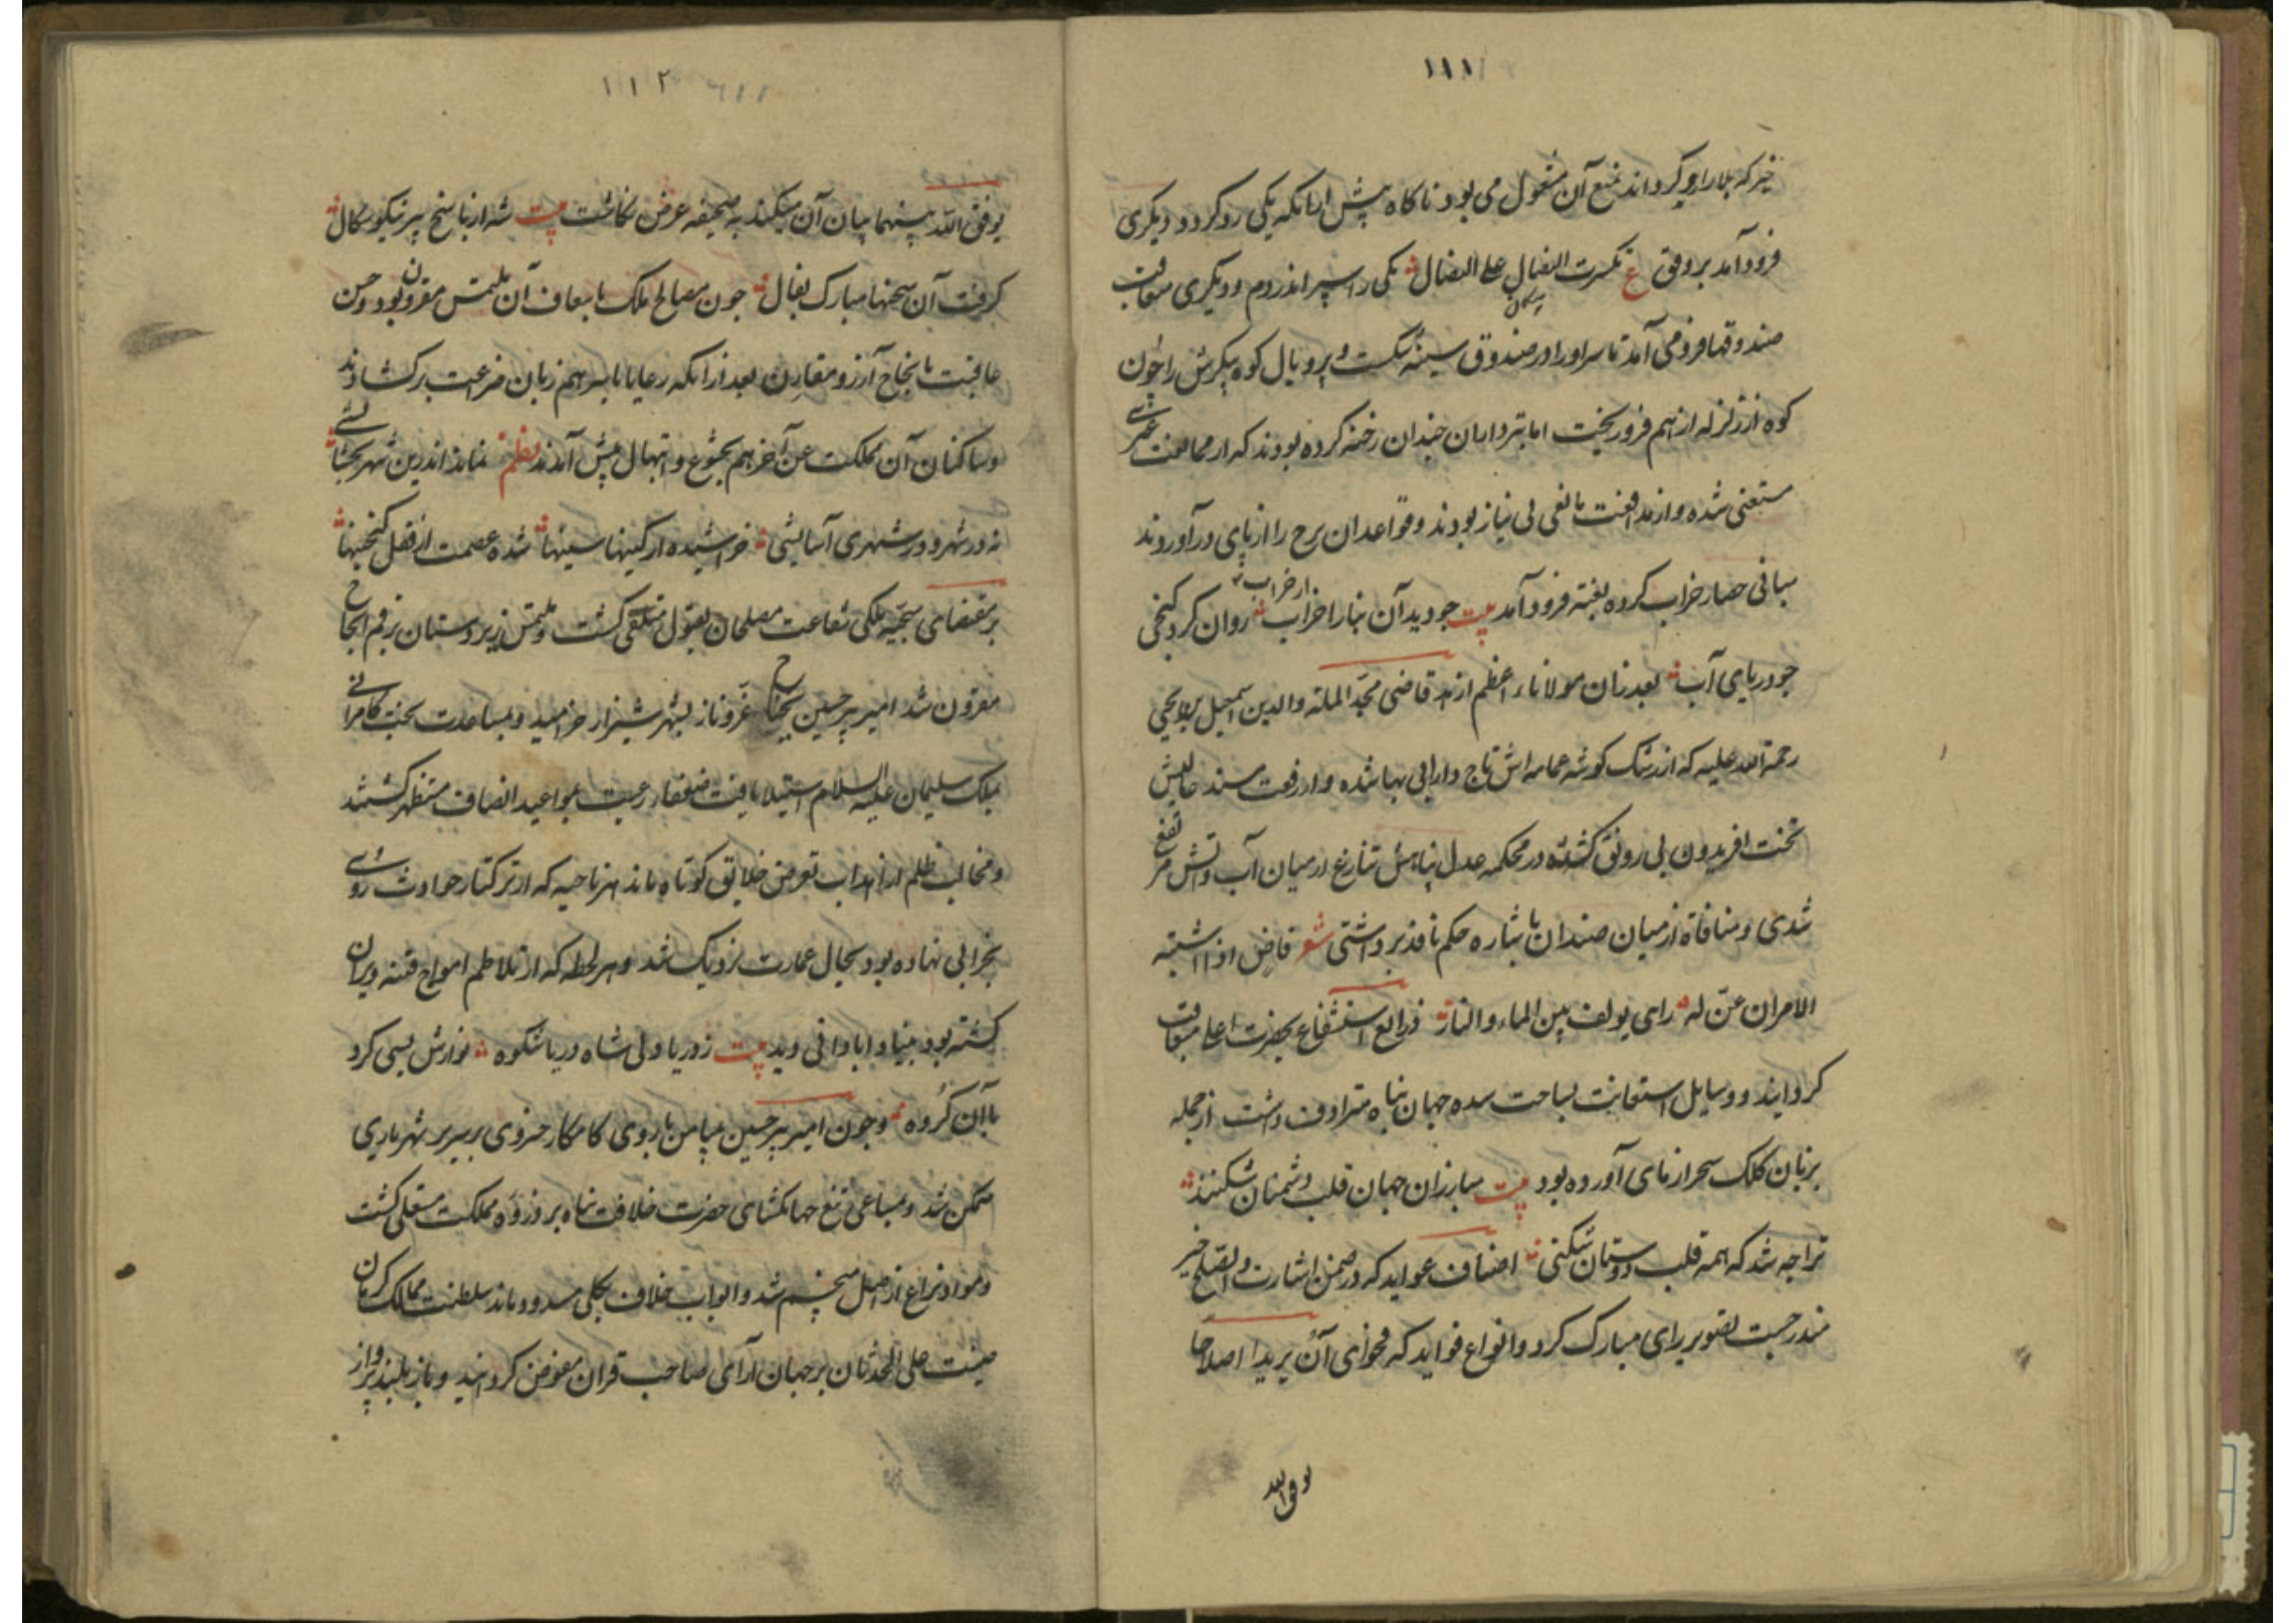 ۱۱۱
خیر که بلا را رو کرداند منع آن مشغول می بود ناکاه پیش ازانکه یکی رد کردد و دیکری
فرود آمد بر وفق ع تکسرت النصال علی النصال یکی را سپر اندر دم و دیکری متعاقب
صندوقها فرو می آمد تا سر او را در صندوق سینه شکست و پر و بال کوه پیکرش را چون
کوه از زلزله از هم فرو ریخت اما تبرداران چندان رخنه کرده بودند که از ممانعت
مستغنی شده و از مدافعت مانعی بی نیاز بودند و قواعد ان برج را از پای در آوردند
مبانی حصار خراب کرده بغتة فرود آمد بیت چو دید آن بنا را خراب از خراب روان کرد کنجی
چو دریای آب بعد زان مولاناء اعظم قاضی مجد الملة والدین اسمعیل بن یحیی
رحمة الله علیه که از رشک کوشه عمامه اش تاج دارا بی بها شده و از رفعت مسند
تخت افریدون بی رونق کشته در محکمه عدل پناهش تنازع از میان آب و آتش مرتفع
شدی و منافاة از میان ضدان باشاره حکم نافذ برداشتی شعر قاض اذا اشتبه
الامران عن له رای یولف بین الماء والنار ذرایع استشفاع بحضرت اعلی متعاقب
کردانید و وسایل استعانت بساحت سده جهان پناه مترادف داشت از جمله
بزبان کلک سحر ازمای آورده بود بیت مبارزان جهان قلب دشمنان شکنند
ترا چه شد که همه قلب دوستان شکنی اصناف عواید که در ضمن اشارت والصلح خیر
مندرجست تصویر رای مبارک کرد و انواع فواید که فحوای آن یریدا اصلاحا
یوفق الله
۱۱۲
یوفق الله بینهما بیان آن میکند به صحیفه عرض نکاشت بیت شه از پاسخ پیر نیکو سکال
کرفت آن سخنها مبارک بفال چون مصالح ملک باسعاف آن ملتمس مقرون بود و حسن
عاقبت بانجاح آرزو مقارن بعد ازانکه رعایا باسرهم زبان ضراعت برکشادند
و ساکنان آن مملکت عن آخرهم بخشوع و ابتهال پیش آمدند نظم نماند اندرین شهر بخشایشی
نه در شهر و در شهری آسایشی خراشیده از کینها سینها شده عصمت از قفل کنجینها
بر مقتضای سجیه ملکی شفاعت مصلحان بقبول متلقی کشت و ملتمس زیردستان برقم انجاح
مقرون شد امیر پیر حسین بنجاح غر و ناز بشهر شیراز خرامید و بمساعدت بخت کامرانی
بملک سلیمان علیه السلام استیلا یافت ضعفاء رعیت بمواعید انصاف مستظهر کشتند
و مخالب ظلم از اهداب تعرض خلایق کوتاه ماند هر ناحیه که از ترکتاز حوادث روی
بخرابی نهاده بود بحال عمارت نزدیک شد و هر لحظه که از تلاطم امواج فتنه ویران
کشته بود بنیاد ابادانی دید بیت ز دریا دلی شاه دریا شکوه نوازش بسی کرد
باآن کروه و چون امیر پیر حسین بیامن بازوی کامکار خسروی بر سریر شهریاری
متمکن شد و بمساعی تیغ جهانکشای حضرت خلافت پناه بر ذروه مملکت مستعلی کشت
و مواد نزاع از اصل منحسم شد و ابواب خلاف بکلی مسدود ماند سلطنت ممالک کرمان
صینت علی الحدثان بر جهان آرای صاحب قران مفوض کردانید و باز بلند پرواز